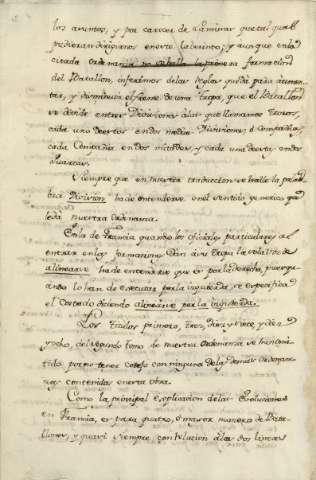 los asuntos, y por carecer de Caminos que tal qual
pudieran dirigirnos en este laberinto; y aunque en la
citada ordenanza no se halla la primera formacion
del Batallon, inferimos de las reglas que dá para aumen-
tar, y disminuir el frente de una tropa, que el Batallon
se divide en tres Divisiones a las que llamamos tercios,
cada uno de estos en dos medias Divisiones, ó Compañias,
cada Compañia en dos mitades, y cada una de estas en dos
quartas.
Siempre que en nuestra traduccion se halle la pala-
bra Division ha de entenderse en el sentido generico que
le da nuestra ordenanza.
En la de Francia quando los oficiales particulares al
entrar en las formaciones dan á su tropa la voz alto de
alinearse ha de entenderse que es por la derecha, pues qu-
ando lo han de executar por la izquierda se especifica
el costado diciendo alinearse por la izquierda.
Los tratados primero, tres, diez y siete, y diez
y ocho, del segundo tomo de nuestra ordenanza se han omi-
tido por no tener cotejo con ninguna de las demas ordenan-
zas contenidas en esta obra.
Como la principal explicacion de las Evoluciones
en Francia, es para quatro, ó mayor numero de Bata-
llones, y quasi siempre con relacion á las dos lineas